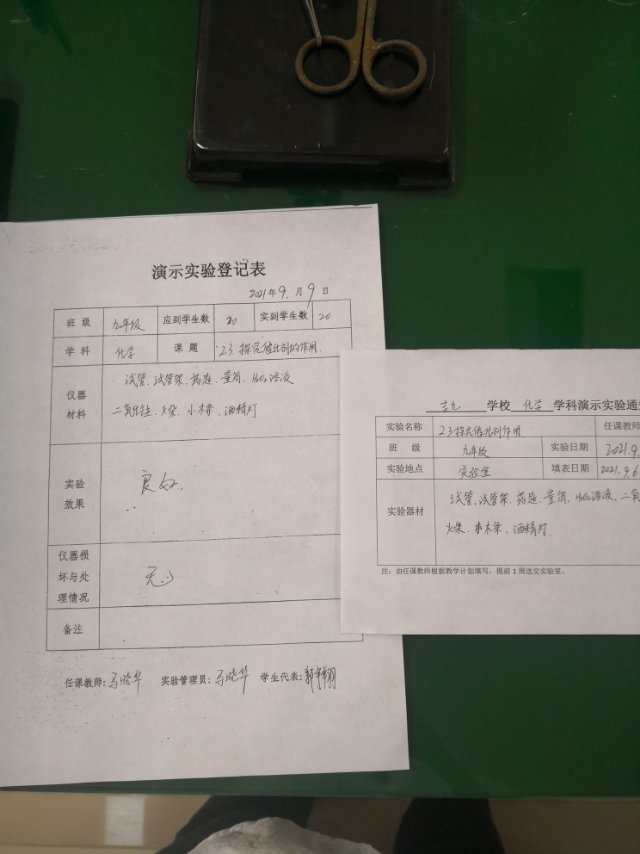 演示实验登记表
2021年9月9日
班级 九年级 应到学生数 20 实到学生数 20
学科 化学 课题 2.3 探究催化剂的作用
仪器材料 试管、试管架、药匙、量筒、H₂O₂溶液
二氧化锰、火柴、小木条、酒精灯
实验效果 良好
仪器损坏与处理情况 无
备注
任课教师:马晓华 实验管理员:马晓华 学生代表:
学校 化学 学科演示实验通
实验名称 2.3探究催化剂作用 任课教师
班级 九年级 实验日期 2021.9.
实验地点 实验室 填表日期 2021.9.6
实验器材 试管、试管架、药匙、量筒、H₂O₂溶液、二氧
火柴、小木条、酒精灯
注:由任课教师根据教学计划填写,提前1周送交实验室。